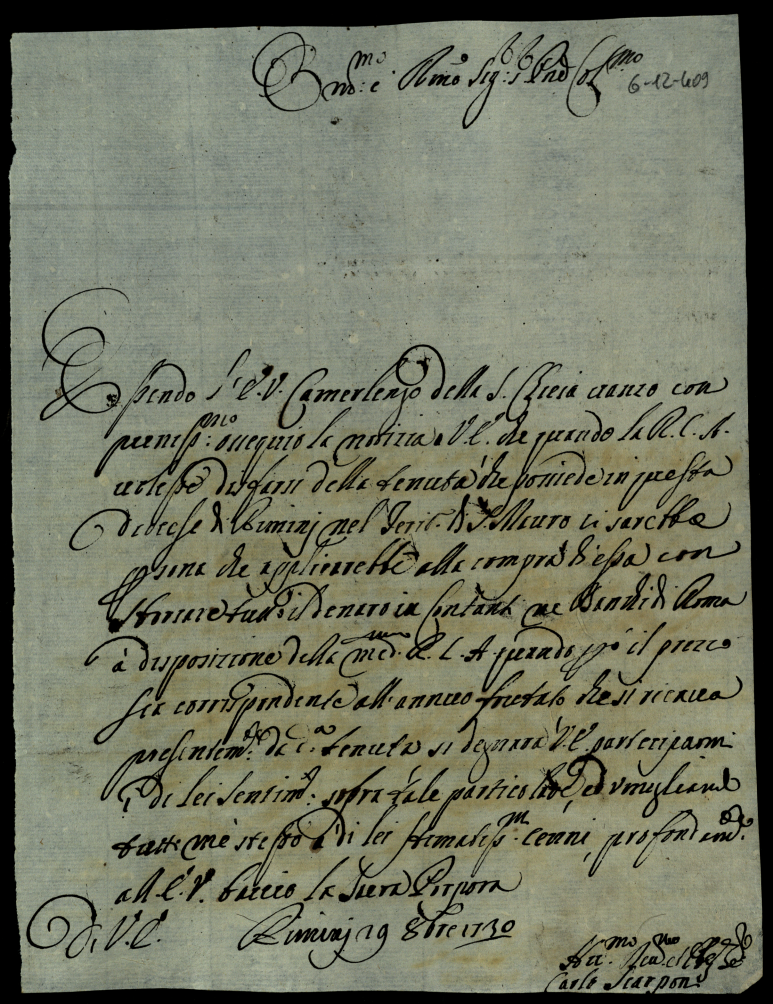 Em.mo e Rmo Sig.r Pñe Col.mo
6-12-409
Essendo l'E.V. Camerlengo della S. Chiesa avanzo con
ossequio la notizia a V.E. che quando la R.C.A.
volesse disfarsi della tenuta che possiede in questa
diocese di Riminj nel Terit.o di S. Mauro ci sarebbe
psona che applicarebbe alla compra d'essa con
sborsare tutto il denaro in Contanti ne Banchi di Roma
à disposizione della med.ma R.C.A. quando pò il prezzo
sia corrispondente all'annuo fruttato che si ricava
presentem.te da d.a tenuta si degnarà V.E. parteciparmi
i di lei Sentim.ti sopra tale particolare, ed umigliando
tutto mè stesso à di lei stimatiss.mi cenni, profondam.te
all'E.V. baccio la Sacra Porpora
Di V.E. Riminj 29 8bre 1730
Carlo Scarponi